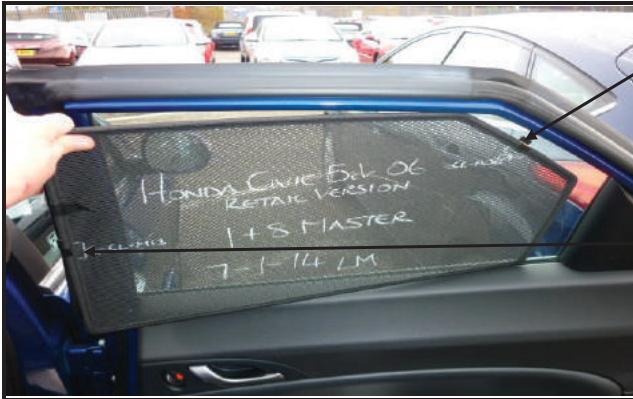 HONDA CIVIC 5dr 06
RETAIL VERSION
1+8 MASTER
7-1-14 LM